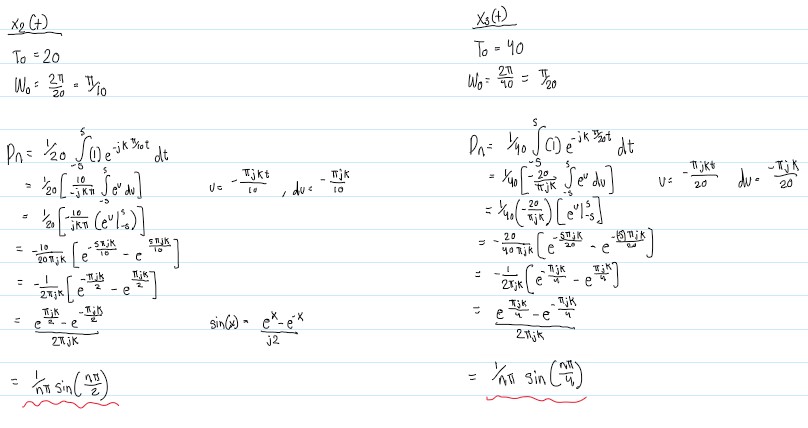 x₂(t)
T₀ = 20
W₀ = 2π/20 = π/10
Dₙ = 1/20 ∫₋₅⁵ (1) e^(-jk π/10 t) dt
= 1/20 [10/(-jkπ) ∫₋₅⁵ e^u du]    u = -πjkt/10 , du = -πjk/10
= 1/20 [-10/(jkπ) (e^u |₋₅⁵)]
= -10/(20πjk) [e^(-5πjk/10) - e^(5πjk/10)]
= -1/(2πjk) [e^(-πjk/2) - e^(πjk/2)]
= (e^(πjk/2) - e^(-πjk/2))/(2πjk)    sin(x) = (e^x - e^-x)/j2
= 1/nπ sin(nπ/2)
x₃(t)
T₀ = 40
W₀ = 2π/40 = π/20
Dₙ = 1/40 ∫₋₅⁵ (1) e^(-jk π/20 t) dt
= 1/40 [-20/(πjk) ∫₋₅⁵ e^u du]    u = -πjkt/20    du = -πjk/20
= 1/40 (-20/(πjk)) [e^u |₋₅⁵]
= -20/(40πjk) [e^(-5πjk/20) - e^(-(-5)πjk/20)]
= -1/(2πjk) [e^(-πjk/4) - e^(πjk/4)]
= (e^(πjk/4) - e^(-πjk/4))/(2πjk)
= 1/nπ sin(nπ/4)